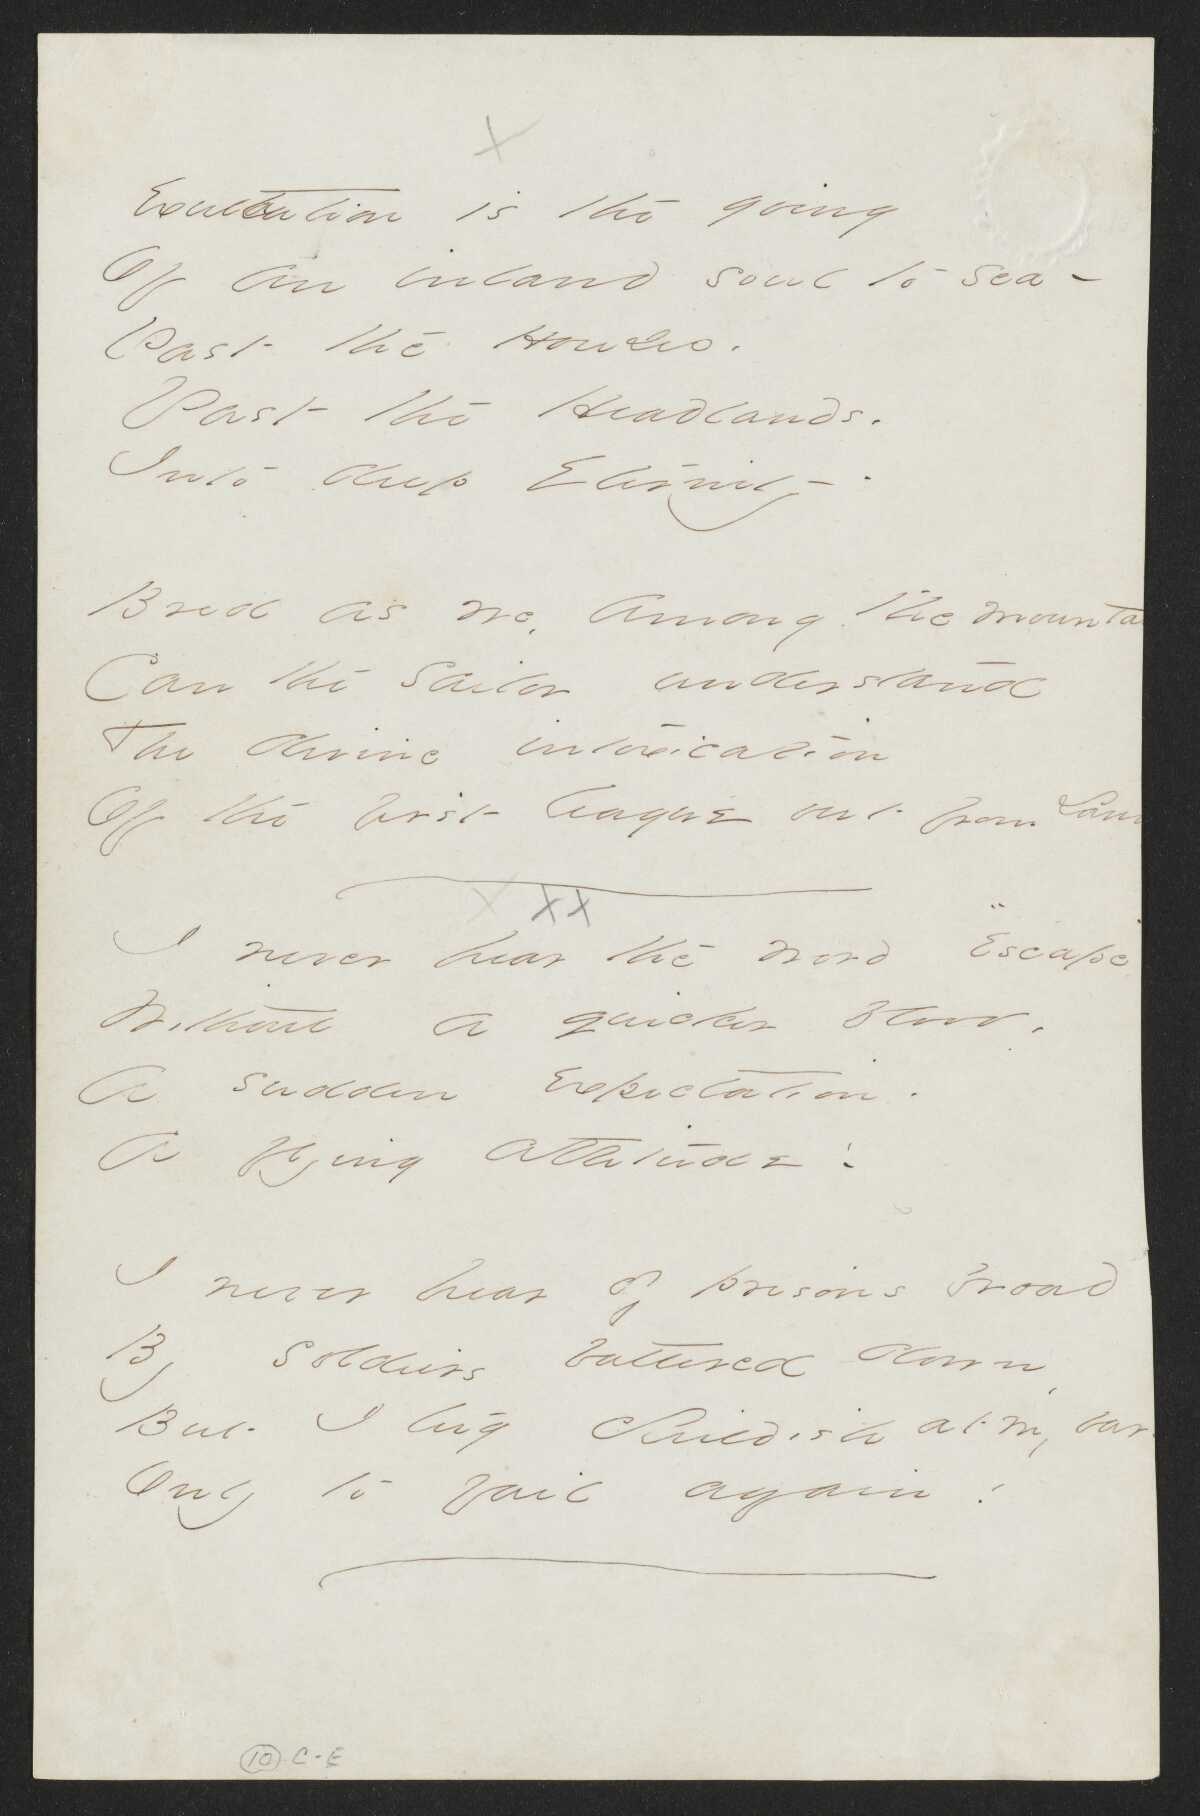 X
Exultation is the going
Of an inland soul to sea -
Past the Houses.
Past the Headlands.
Into deep Eternity - .
Bred as we, among the mounta
Can the sailor understand
The divine intoxication
Of the first league out from Lan
X XX
I never hear the word "Escape
Without a quicker blood.
A sudden expectation.
A flying attitude!
I never hear of prisons broad
By soldiers battered down,
But I tug childish at my bar
Only to fail again!
10 C-E